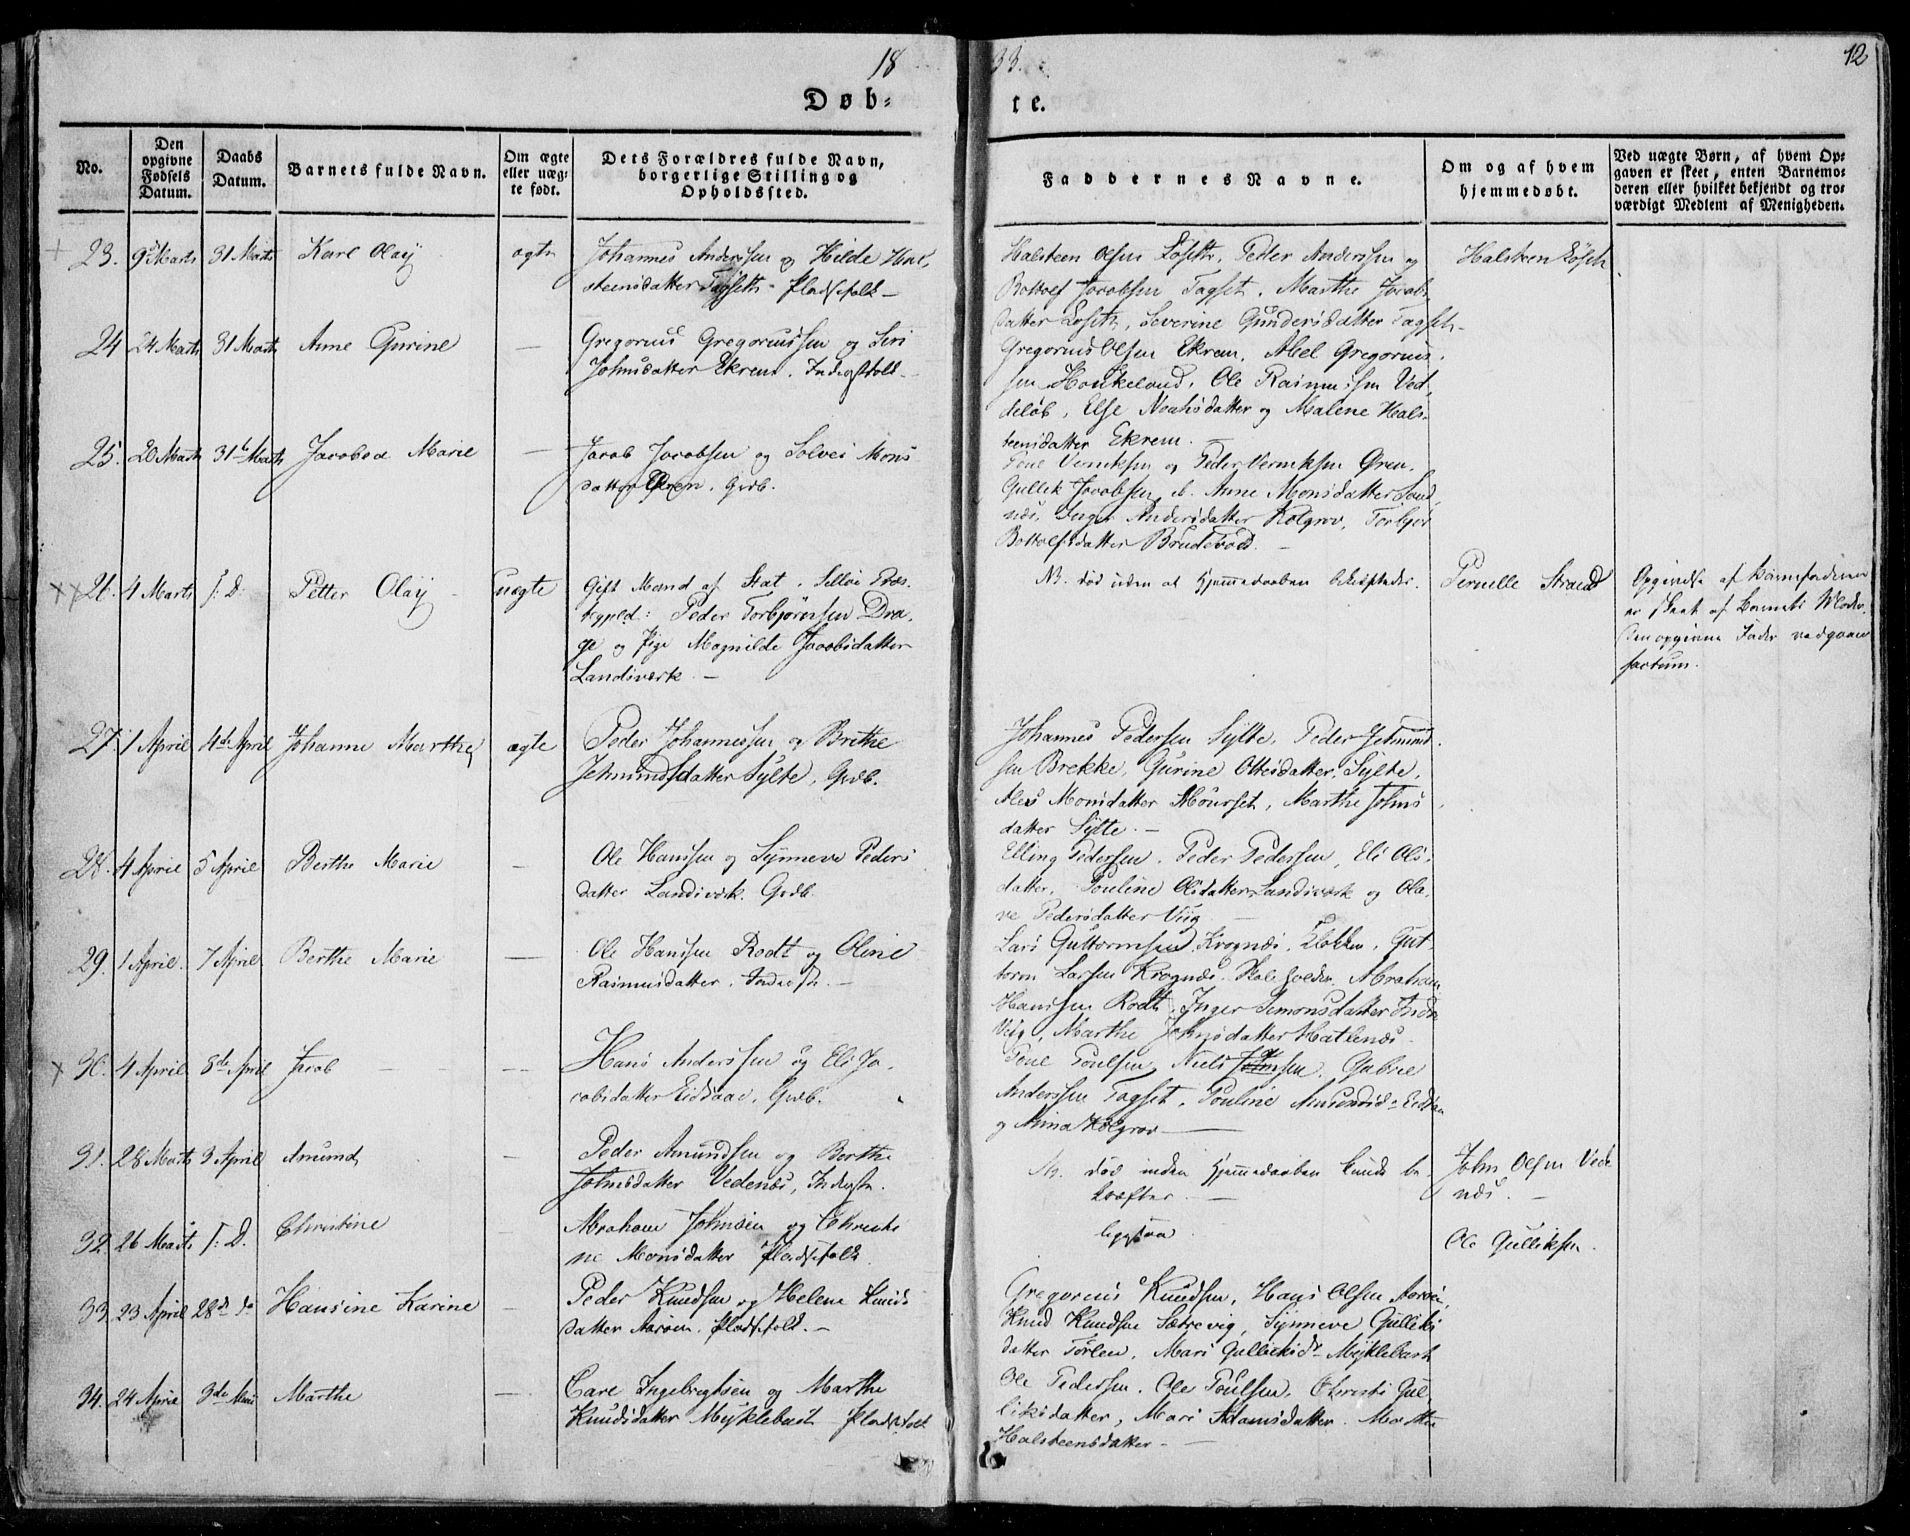 18
33.
12
Døb-
te.
No.
Den opgivne Fødsels Datum.
Daabs Datum.
Barnets fulde Navn.
Om ægte eller uæg-te født.
Dets Forældres fulde Navn, borgerlige Stilling og Opholdssted.
Faddernes Navne.
Om og af hvem hjemmedøbt.
Ved uægte Børn, af hvem Op-gaven er skeet, enten Barnemo-deren eller hvilket bekjendt og tro-værdigt Medlem af Menigheden.
23. 9de Marts 31 Marts Karl Olay ægte
Johannes Anderssen og Hilde Hal-
steensdatter Tagseth - Pladsefolk -
Halsteen Olsen Løseth, Peder Anderssen og
Bottolf Jacobsen Tagset, Marthe Jacobs
datter Løseth, Severine Gundersdatter Tagseth -
Halsteen Løseth
24 24 Marts 31 Marts Anne Gurine —
Gregorius Gregoriussen og Siri
Johnsdatter Ekrem, Inderstfolk -
Gregorius Olsen Ekrem, Abel Gregorius-
sen Haukeland, Ole Rasmussen Ved-
deløb, Else Noahsdatter og Malene Hals-
teensdatter Ekrem. -
25. 20 Marts 31te Marts Jacobea Marie —
Jacob Jacobsen og Solvei Mons
datter Øren, Grdb.
Poul Vemiksen og Peder Vemiksen Øren,
Gullik Jacobsen, Anne Monsdatter Sand-
næs, Inger Andersdatter Kolgrov, Torbjør
Bottolfsdatter Brudevold. -
26. 4 Marts s: D. Petter Olay uægte
Gift Mand af Stat, Selløe Præs-
tegjeld: Peder Torbjørnsen Dra-
ge og Pige Magnilde Jacobsdatter
Landiværk -
NB. død uden at Hjemmedaaben bekræftedes.
Pernille Strand
Opgivelse af Barnefaderen
er skeet af Barnets Moder,
den opgivne Fader vedgaaer
factum.
27. 1 April 4de April Johanne Marthe ægte
Peder Johannessen og Brithe
Jetmundsdatter Sylte, Grdb.
Johannes Pedersen Sylte, Peder Jetmund-
sen Brekke, Gurine Ottesdatter Sylte,
Ales Monsdatter Mourset, Marthe Johns
datter Sylte. -
28. 4 April 5 April Berthe Marie —
Ole Hanssen og Synneve Peders
datter Landiværk. Grdb.
Elling Pederssen, Peder Pederssen, Eli Ols-
datter, Pouline Olsdatter Landiværk og Ola-
ve Pedersdatter Viig
29. 1 April. 7 April. Berthe Marie —
Ole Hanssen Rodt og Oline
Rasmusdatter, Inderste. -
Lars Guttormsen Krognæs, Klokker, Gut-
torm Larsen Krognæs, Skoleholder, Abraham
Hanssen Rodt, Inger Simonsdatter Indre
Viig, Marthe Johnsdatter Hatlenæs
30. 4 April 8de April Jacob —
Hans Anderssen og Eli Ja-
cobsdatter Eidsaae, Grdb.
Poul Poulsen, Niels Johnsen, Gabriel
Anderssen Tagset, Pouline Amundsdr Eidsaa
og Anna Kolgrov —
31. 28 Marts 9 April Amund —
Peder Amundsen og Berthe
Johnsdatter Vedenæs, Inderste.
NB. død inden Hjemmedaaben kunde be-
kræftes. -
John Olsen Vede
næs. -
32. 26 Marts s: D. Christine
Abraham Johnsen og Christi
ne Monsdatter Pladsefolk
ligesaa
Ole Gulliksen.
33. 23 April 28de do Hansine Karine —
Peder Knudsen og Helene Knuds
datter Aarøen, Pladsefolk. -
Gregorius Knudsen, Hans Olsen Aarøe,
Knud Knudsen Sætrevig, Synneve Gulliks
datter Torlen, Mari Gulliksdr Myklebust
34. 24 April 3de Mai Marthe —
Carl Ingebregtsen og Marthe
Knudsdatter Myklebust Pladsefolk
Ole Pedersen, Ole Poulsen, Christi Gul-
liksdatter, Mari Adamsdatter, Marthe
Halsteensdatter -